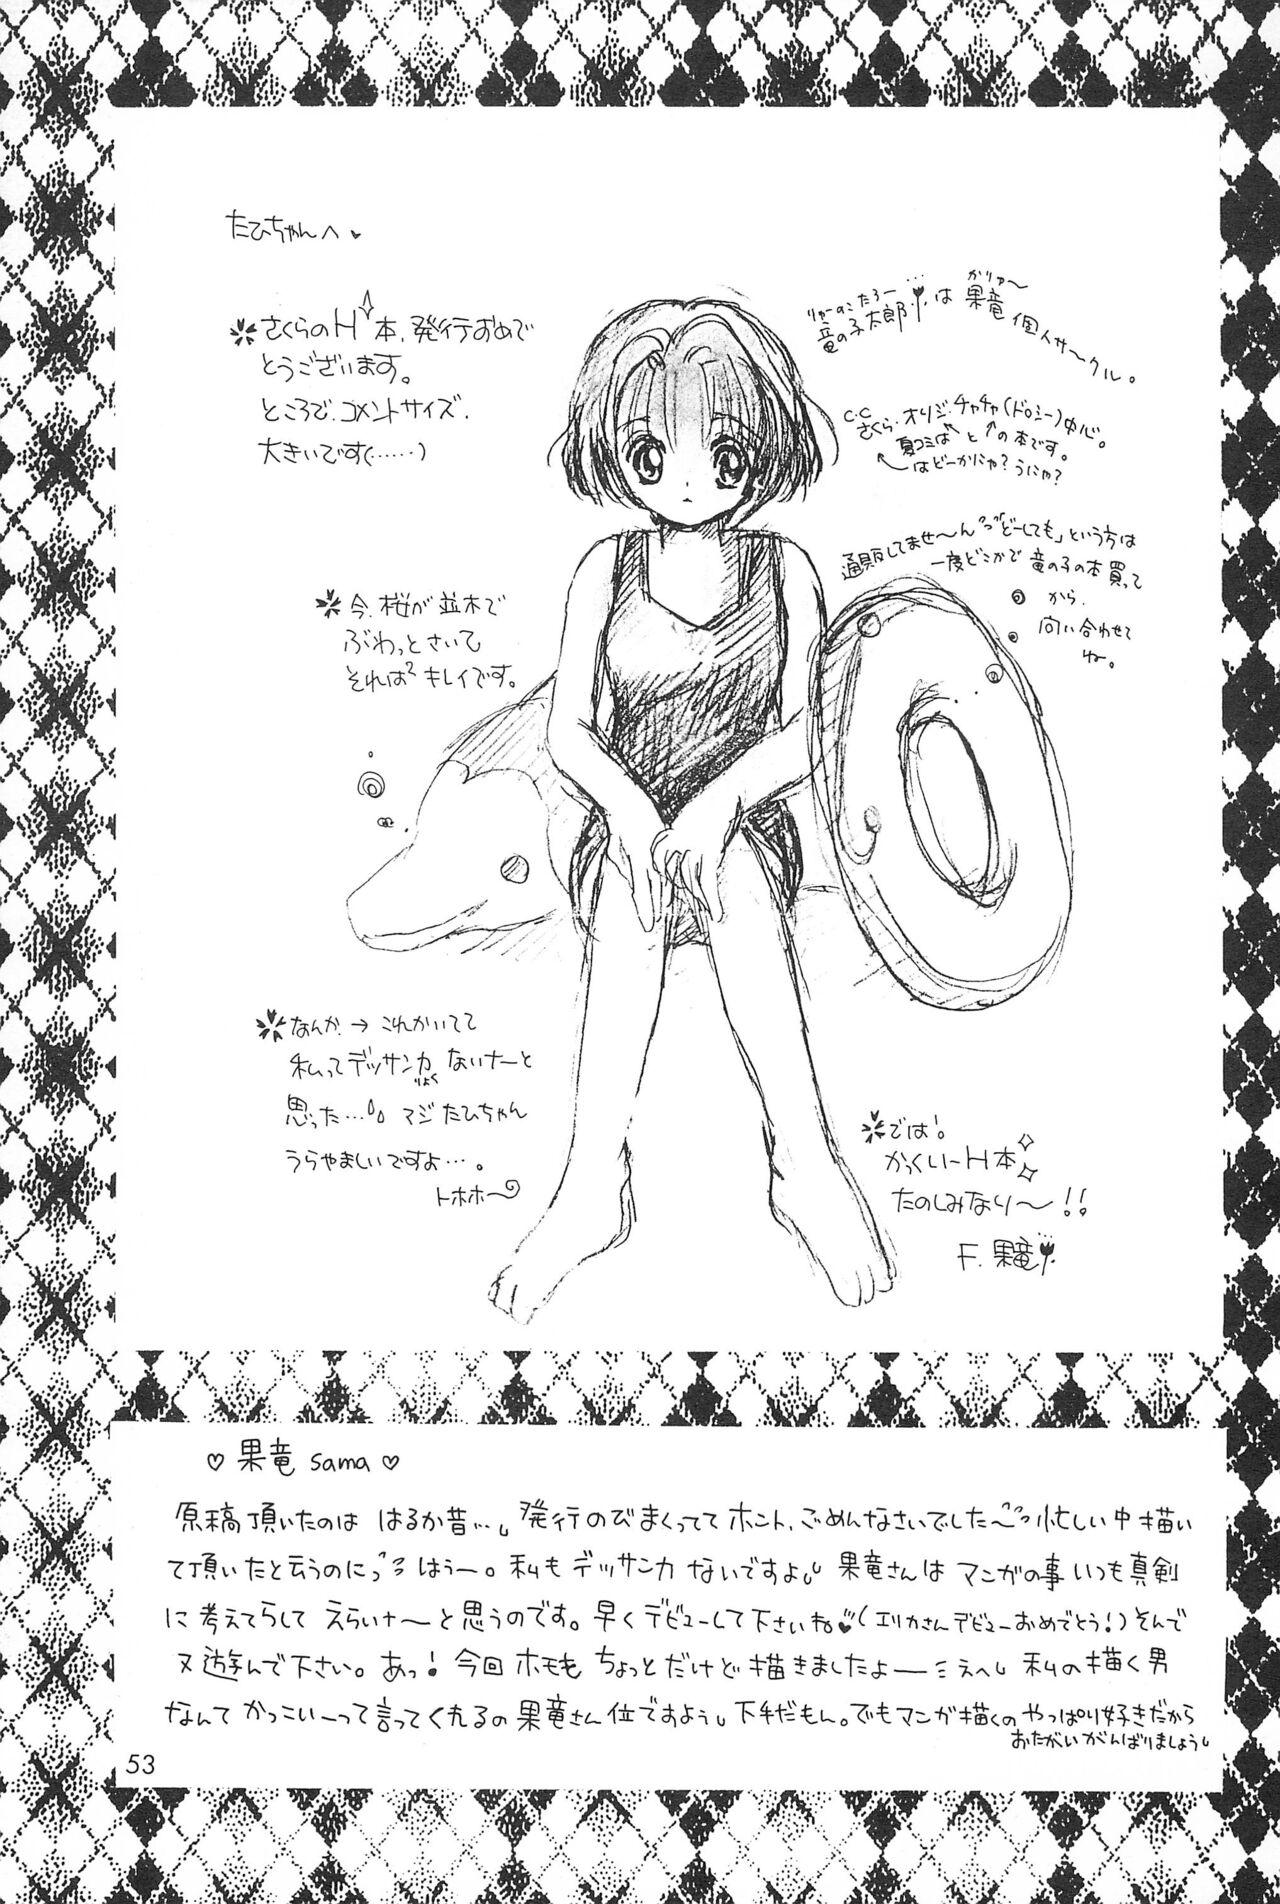 たひちゃんへ
さくらのH本、発行おめで
とうございます。
ところで、コメントサイズ、
大きいです(……)
りゅーのこたろー…
がりゅ〜
竜の子太郎、は 果竜 個人サークル。
C.C
さくら、オリジ、チャチャ(ドロシー)中心。
夏コミは↖と↗の本です。
はどーかにゃ?うにゃ?
通販してませ〜ん「どーしても」という方は
一度どこかで 竜の子の本買って
から、
問い合わせて
ね。
今、桜が並木で
ぶわっとさいて
それは²キレイです。
なんか → これかいてて
私ってデッサン力 ないナーと
りょく
思った… マジ たひちゃん
うらやましいですよ…。
トホホ〜
では!
かっくいーH本
たのしみなり〜!!
F. 果竜
♡ 果竜 sama ♡
原稿頂いたのは はるか昔…。発行のびまくってて ホント、ごめんなさいでした〜 忙しい中 描い
て頂いたと云うのに はうー。私も デッサンカ ないですよ。果竜さんは マンガの事 いつも真剣
に 考えてらして えらいナ〜と思うのです。早くデビューして下さいね(エリカさんデビューおめでとう!)そんで
又遊んで下さい。あっ! 今回 ホモも ちょっとだけど 描きましたよー えへ。私の描く男
なんて かっこいーって言ってくれるの果竜さん位ですよう。下手だもん。でもマンガ描くの やっぱり好きだから
おたがい がんばりましょう。
53